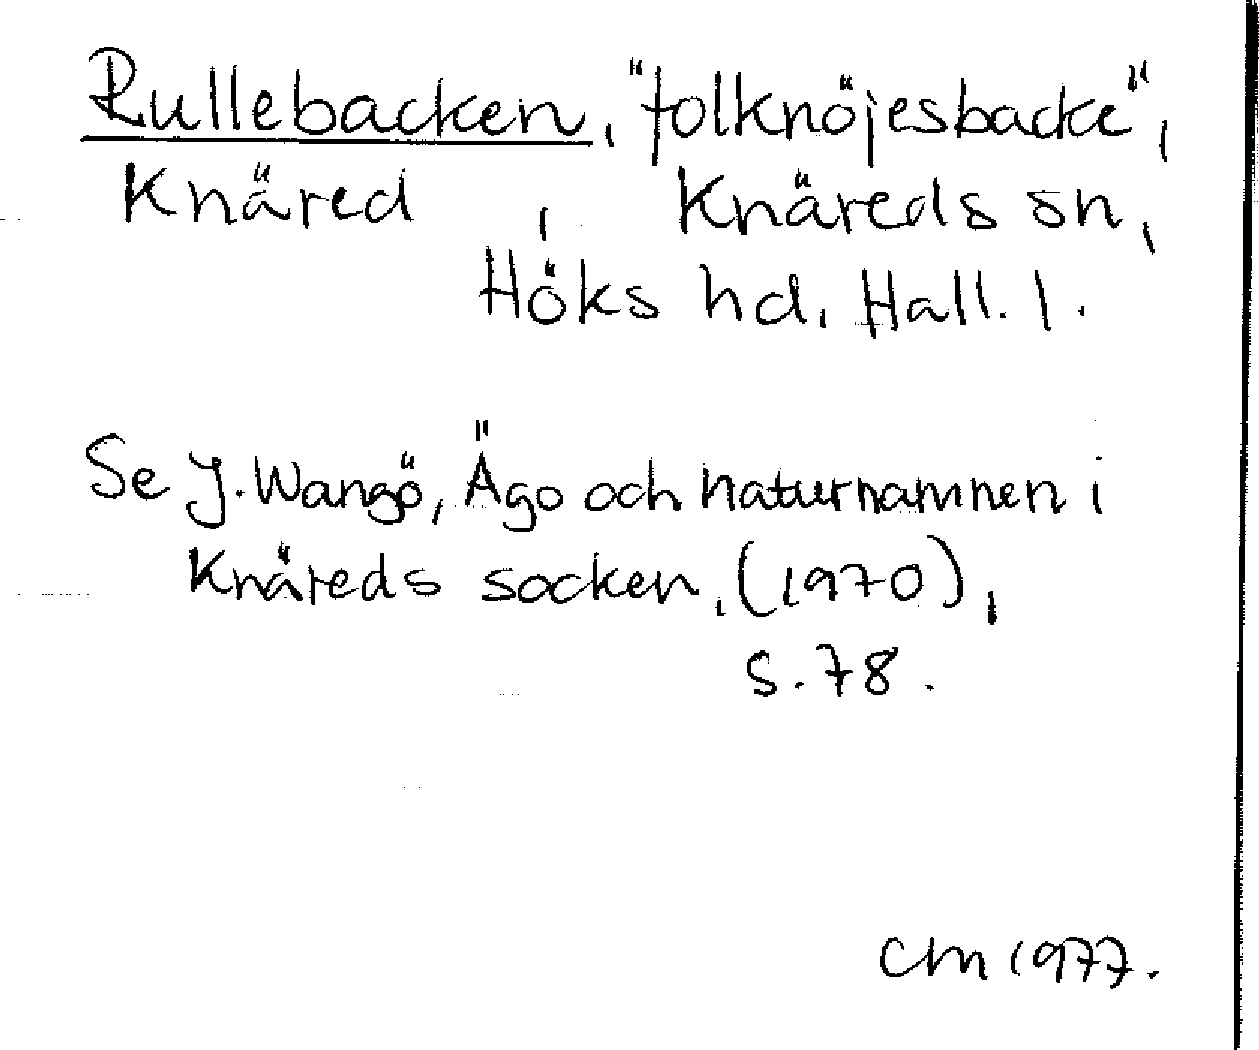 Rullebacken, "folknöjesbacke",
Knäred, Knäreds sn,
Höks hd, Hall. l.
Se J. Wangö, Ägo och naturnamnen i
Knäreds socken, (1970),
s. 78.
CM 1977.